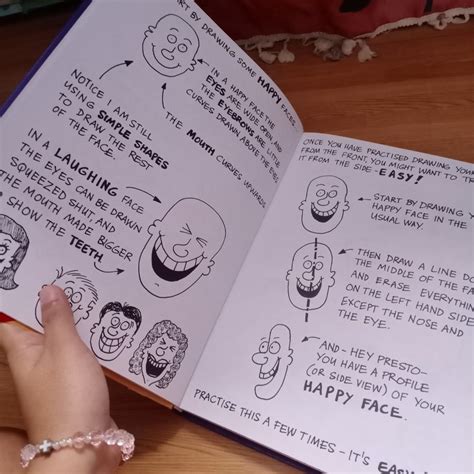 START BY DRAWING SOME HAPPY FACES
IN A HAPPY FACE THE
EYES ARE WIDE OPEN AND
THE EYEBROWS ARE LITTLE
CURVES DRAWN ABOVE THE EYES
THE MOUTH CURVES UPWARDS
NOTICE I AM STILL
USING SIMPLE SHAPES
TO DRAW THE REST
OF THE FACE.
IN A LAUGHING FACE
THE EYES CAN BE DRAWN
SQUEEZED SHUT, AND
THE MOUTH MADE BIGGER
SHOW THE TEETH
ONCE YOU HAVE PRACTISED DRAWING
FROM THE FRONT, YOU MIGHT WANT TO
IT FROM THE SIDE - EASY!
START BY DRAWING
HAPPY FACE IN THE
USUAL WAY.
THEN DRAW A LINE
THE MIDDLE OF THE
AND ERASE
ON THE LEFT HAND SIDE
EXCEPT THE NOSE AND
THE EYE.
AND - HEY PRESTO -
YOU HAVE A PROFILE
(OR SIDE VIEW) OF YOUR
HAPPY FACE.
PRACTISE THIS A FEW TIMES - IT'S